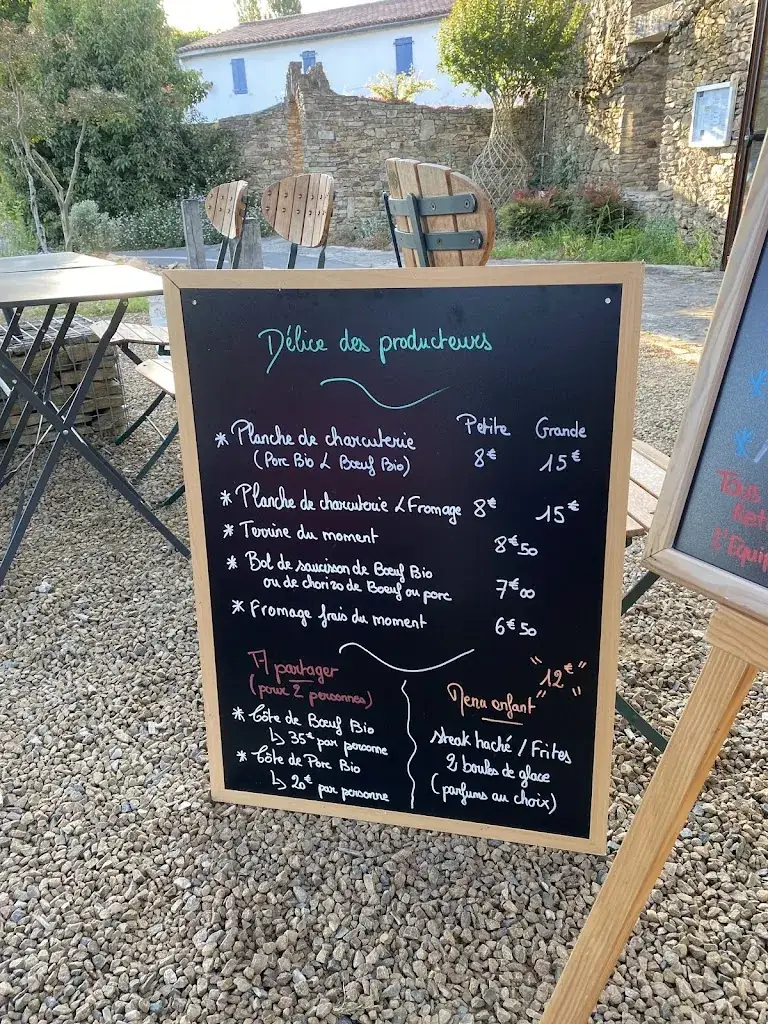 Délice des producteurs
Petite Grande
* Planche de charcuterie 8€ 15€
(Porc Bio & Bœuf Bio)
* Planche de charcuterie & Fromage 8€ 15€
* Terrine du moment 8€50
* Bol de saucisson de Bœuf Bio
ou de chorizo de Boeuf ou porc 7€00
* Fromage frais du moment 6€50
A partager
(pour 2 personnes)
* Côte de Bœuf Bio
↳ 35€ par personne
* Côte de Porc Bio
↳ 20€ par personne
"12€"
Menu enfant
Steak haché / Frites
2 boules de glace
(parfums au choix)
Tous
L'Equip